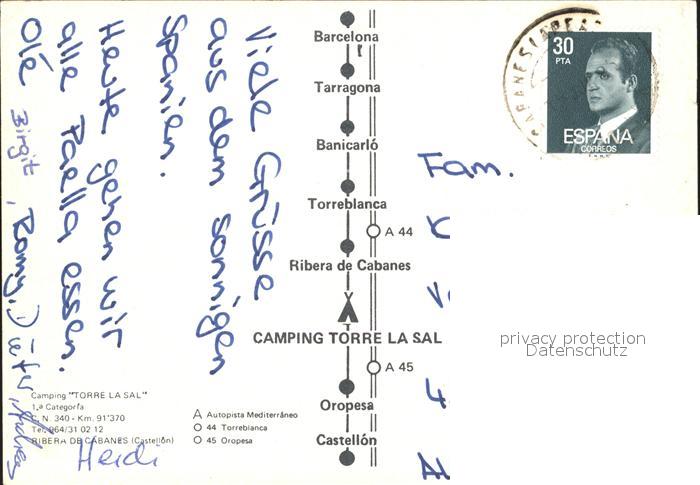 Viele Grüsse
aus dem sonnigen
Spanien.
Heute gehen wir
alle Paella essen.
Olé
Birgit, Romy, Dieter, Andrea
Heidi
Barcelona
Tarragona
Banicarló
Torreblanca
A 44
Ribera de Cabanes
CAMPING TORRE LA SAL
A 45
Oropesa
Castellón
Camping "TORRE LA SAL"
1.ª Categoría
C. N. 340 - Km. 91'370
Tel. 964/31 02 12
RIBERA DE CABANES (Castellón)
A Autopista Mediterráneo
44 Torreblanca
45 Oropesa
30
PTA
ESPAÑA
CORREOS
Fam.
privacy protection
Datenschutz